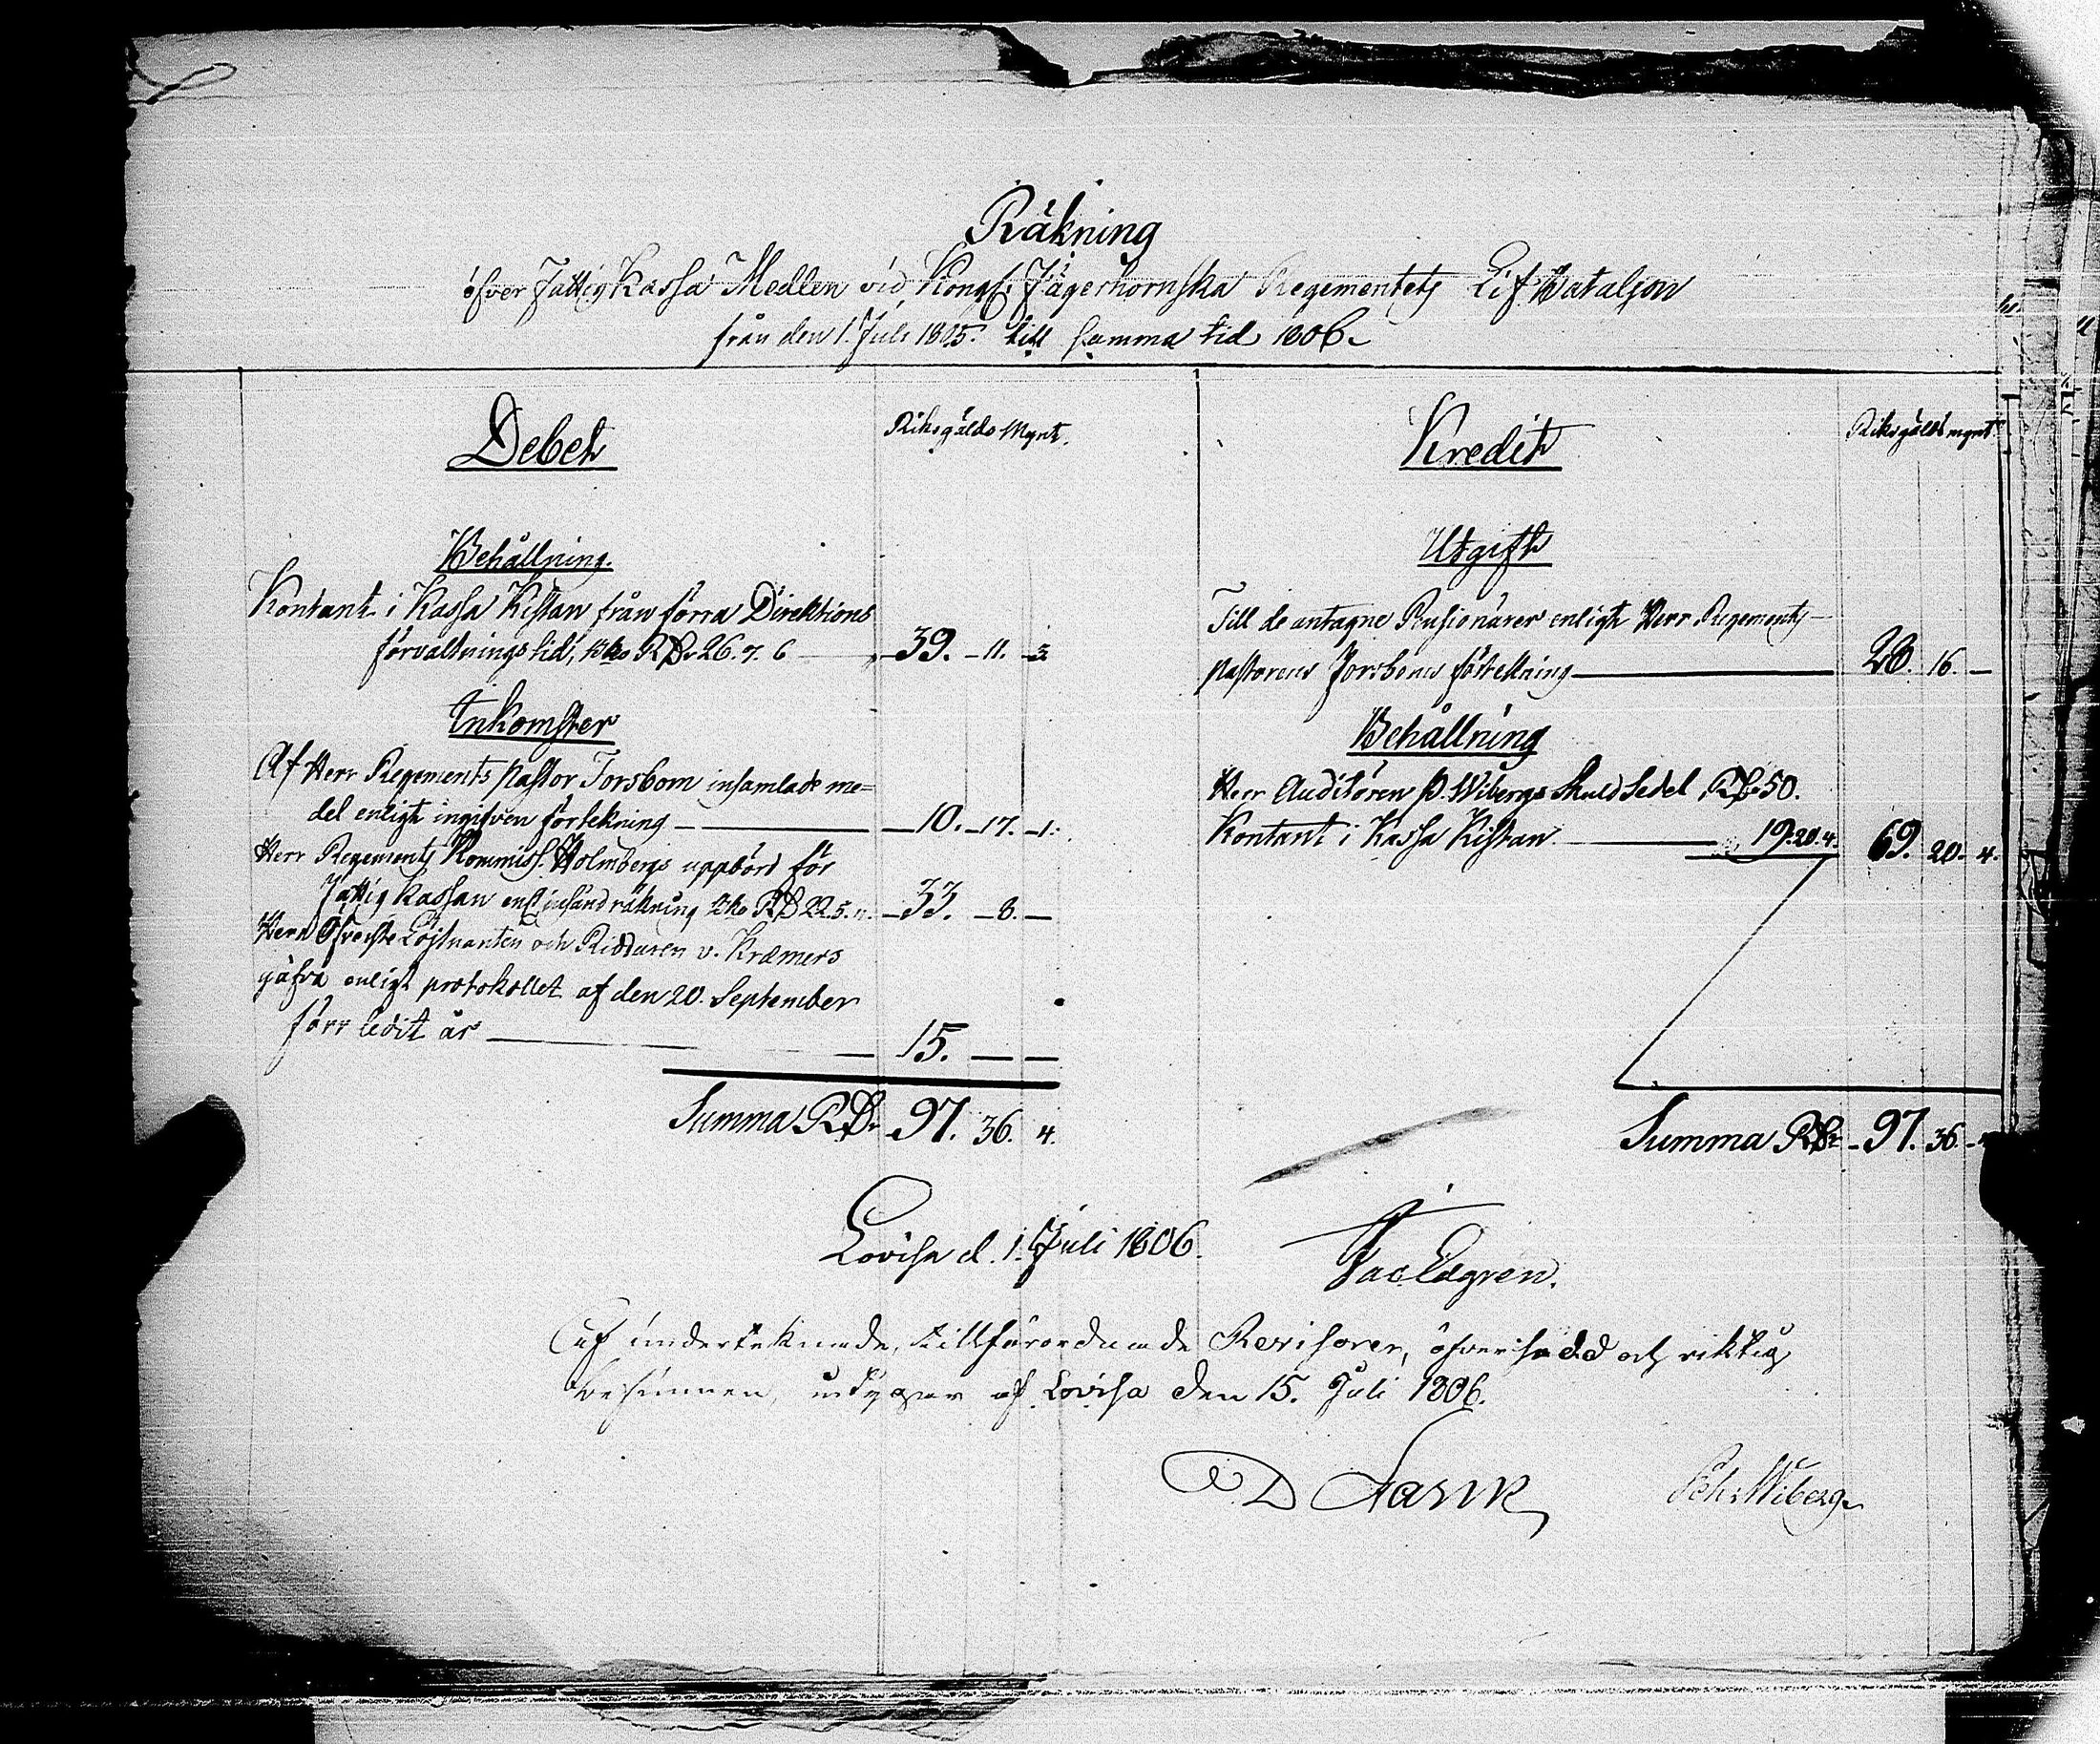 Räkning
öfver Fattig Kassa Medlen vid Kongl. Jägerhornska Regementets Lif Bataljon
från den 1. Juli 1805. till samma tid 1806.
Debet
Riksgälds Mynt.
Behållning.
Kontant i Kassa Kistan från förra Direktions
förvaltnings tid, Bko RDr 26. 7. 6 39. 11. 3.
Inkomster
Af Herr Regements Pastor Forsbom insamlade me=
del enligt ingifven förtekning 10. 17. 1.
Herr Regements Kommiss. Holmbergs uppbörd för
Fattig Kassan enl. insänd räkning Bko RD 22. 5. 33. 8. —
Herr Öfverste Löjtnanten och Riddaren v. Kræmers
gåfva enligt protokollet af den 20. September
förr ledit år 15. — —
Summa RDr 97. 36. 4.
Kredit
Riksgälds mynt
Utgift
Till de antagne Pensionärer enligt Herr Regements
pastorens Forsboms förtekning 28. 16. —
Behållning
Herr Auditören P. Wibergs Skuld Sedel RDr 50.
Kontant i Kassa Kistan 19. 20. 4. 69. 20. 4.
Summa RDr 97. 36.
Lovisa d. 1. Juli 1806.
Jac Edgren.
Af undertecknade, tillförordnade Revisorer, öfversedd och riktig
befunnen, intygar af Lovisa den 15. Juli 1806.
Peh: Wiberg